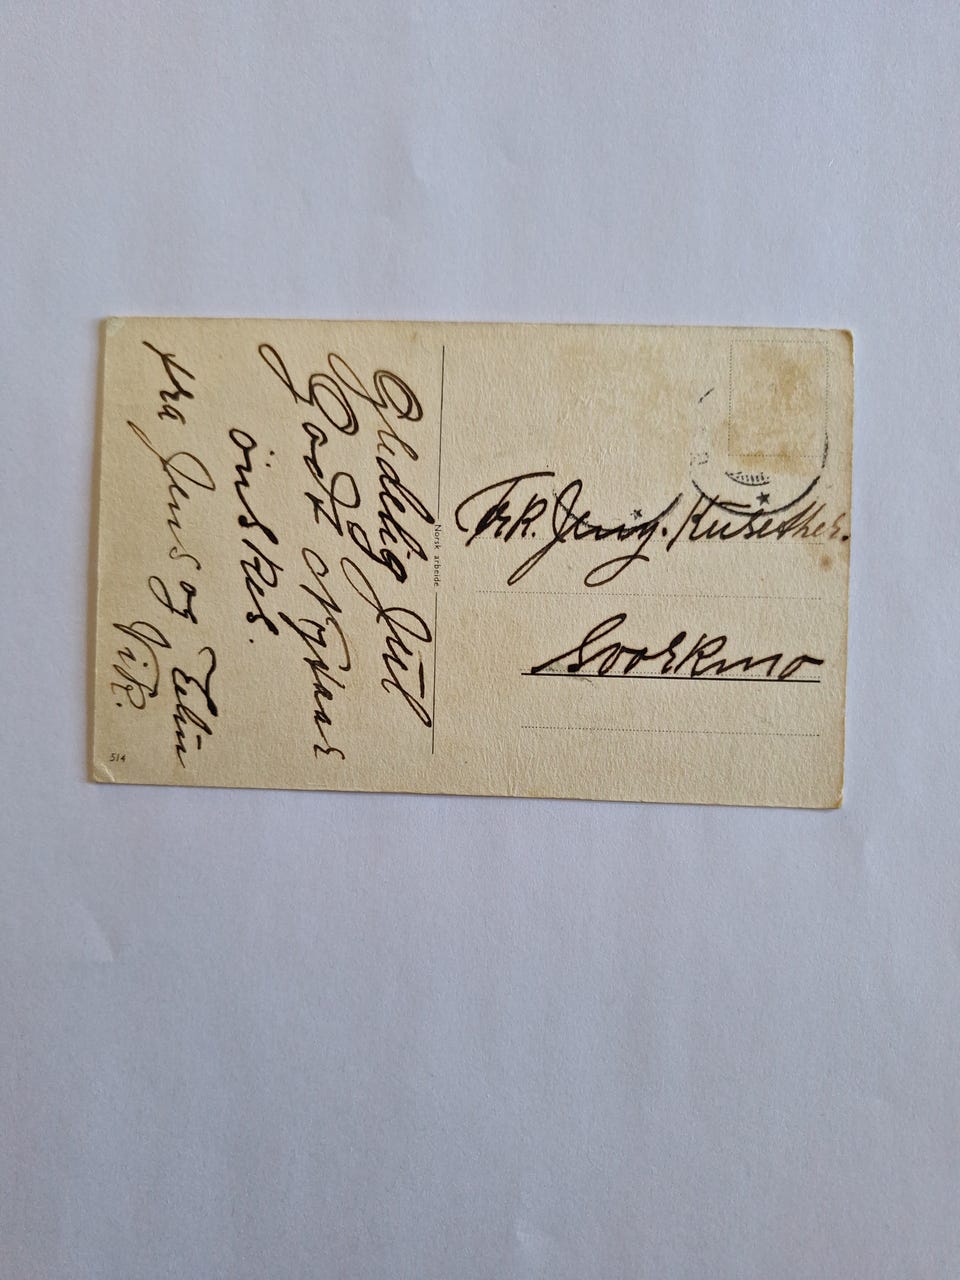 Glædelig Jul
Godt Nytaar
önskes.
fra Jens og Elin
Vik.
Norsk arbeide
Frk. Jenny. Kusether.
Svorkmo
514